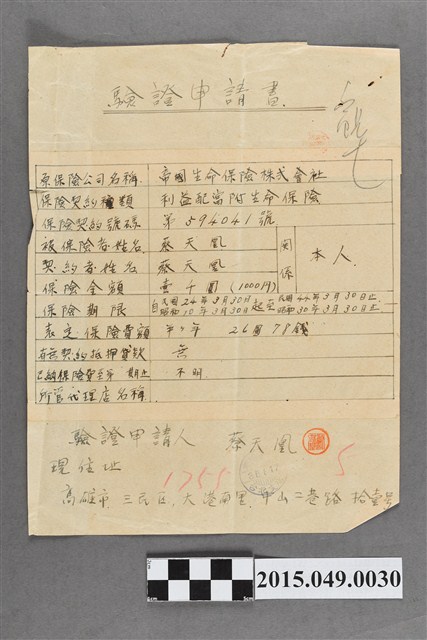 驗證申請書
原保險公司名稱 帝國生命保險株式會社
保險契約種類 利益配當附生命保險
保險契約號碼 第594041號
被保險者姓名 蔡天鳳 關係 本人
契約者姓名 蔡天鳳
保險金額 壹千圓 (1000円)
保險期限 自民國24年3月30日 昭和10年3月30日 起至 民國44年3月30日止 昭和30年3月30日止
表定保險費額 年 26圓78錢
有無契約抵押貸款 無
已納保險費至第 期止 不明
所管代理店名稱
驗證申請人 蔡天鳳
現住址 1755 5
高雄市三民區大港南里中山二巷路拾壹号
2cm
5cm
2015.049.0030